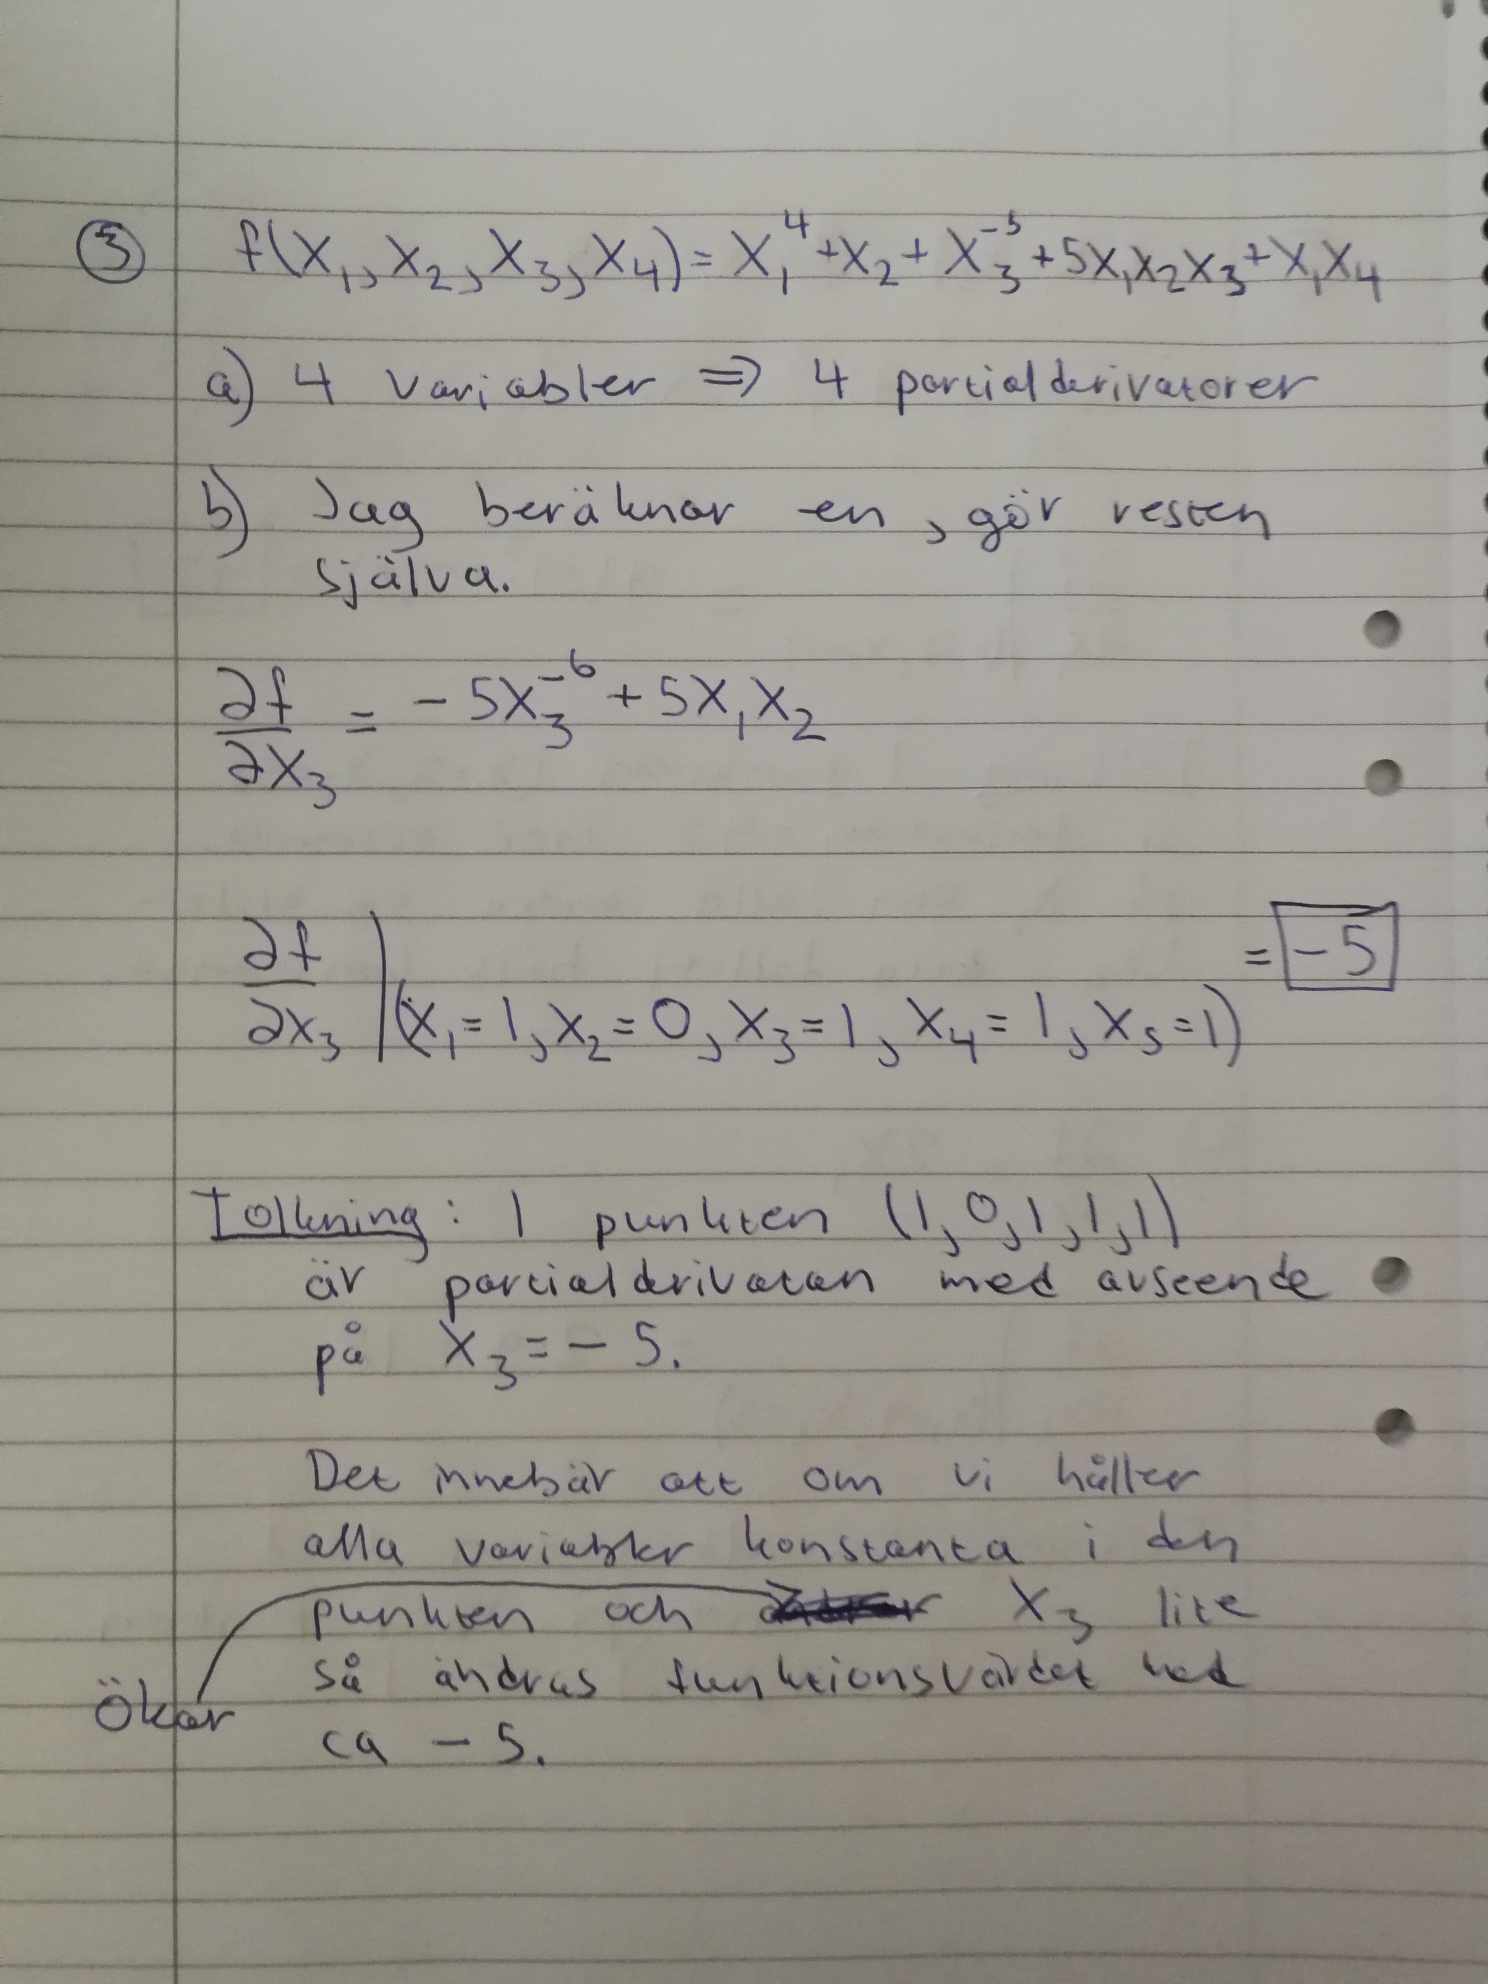 ③ f(x₁, x₂, x₃, x₄) = x₁⁴ + x₂ + x₃⁻⁵ + 5x₁x₂x₃ + x₁x₄
a) 4 variabler ⇒ 4 partialderivatorer
b) Jag beräknar en, gör resten
själva.
∂f/∂x₃ = -5x₃⁻⁶ + 5x₁x₂
∂f/∂x₃ |(x₁=1, x₂=0, x₃=1, x₄=1, x₅=1) = -5
Tolkning: I punkten (1, 0, 1, 1, 1)
är partialderivatan med avseende
på x₃ = -5.
Det innebär att om vi håller
alla variabler konstanta i den
punkten och x₃ lite
så ändras funktionsvärdet med
Ökar
ca -5.